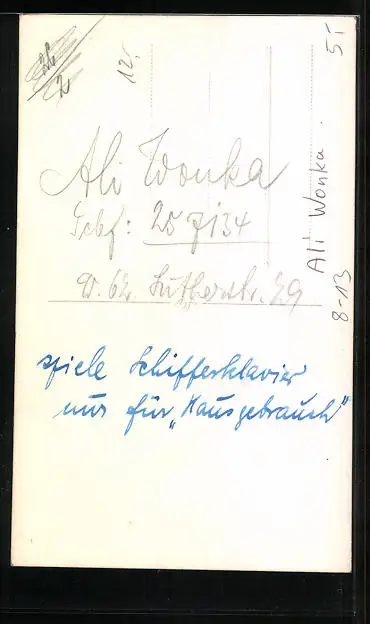 12.
5,-
Ali Wonka
25 7134
W. 62. Lutherstr. 29
spiele Schifferklavier
nur für „Hausgebrauch"
Ali Wonka.
8-13